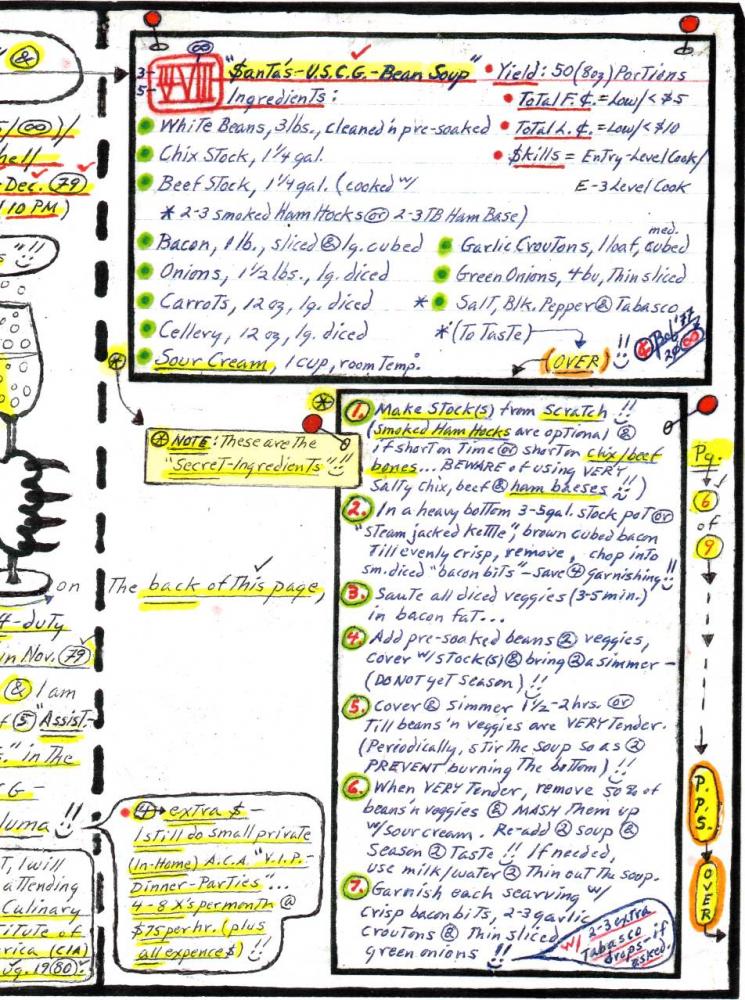 " &
5/∞)/
hell
-Dec. 79
10 PM)
s "!!
on
4-duty
in Nov. 79
& I am
of 5 "Assist.-
s." in the
G-
luma !!
T, I will
attending
Culinary
titute of
rica (CIA)
ug. 1980.
3-
5-
VVIII
∞
"$anta's-U.S.C.G.-Bean Soup"
• Yield: 50(8oz) Portions
Ingredients:
• Total F. ¢. = Low/< $5
White Beans, 3lbs., cleaned'n pre-soaked
• Total L. ¢. = Low/< $10
Chix Stock, 1 1/4 gal.
• $kills = Entry-Level Cook/
Beef Stock, 1 1/4 gal. (cooked w/
E-3 Level Cook
* 2-3 smoked Ham Hocks or 2-3 TB Ham Base)
Bacon, 1 lb., sliced & lg. cubed
Onions, 1 1/2 lbs., lg. diced
Carrots, 12 oz, lg. diced
Cellery, 12 oz, lg. diced
* Sour Cream, 1 cup, room Temp.
med.
Garlic Croutons, 1 loaf, cubed
Green Onions, 4 bu, Thin sliced
* Salt, Blk. Pepper & Tabasco
* (To Taste)
(OVER) !!
Bob '77
20∞
* NOTE: These are the
"Secret-Ingredients" !!
*
1. Make Stock(s) from scratch !!
(smoked Ham Hocks are optional &
if short on Time or short on chix/beef
bones... BEWARE of using VERY
Salty chix, beef & ham baeses !!)
2. In a heavy bottom 3-5gal. stock pot or
"steam jacked kettle", brown cubed bacon
Till evenly crisp, remove, chop into
sm. diced "bacon bits" - save 4 garnishing !!
3. Saute all diced veggies (3-5 min.)
in bacon fat...
4. Add pre-soaked beans 2 veggies,
cover w/ stock(s) & bring 2 a simmer -
(DO NOT yet Season) !!
5. Cover & simmer 1 1/2-2 hrs. or
Till beans 'n veggies are VERY Tender.
(Periodically, stir the soup so as 2
PREVENT burning the bottom) !!
6. When VERY Tender, remove 50% of
beans'n veggies & MASH Them up
w/sour cream. Re-add 2 soup &
Season 2 Taste !! If needed,
use milk/water 2 Thin out the soup.
7. Garnish each searving w/
crisp bacon bits, 2-3 garlic
croutons & Thin sliced
green onions !!
w/ 2-3 extra
Tabasco
drops - if
asked.
Pg.
6
of
9
P.
P.
S.
OVER
The back of This page,
• 4 extra $ -
I still do small private
(In-Home) A.C.A. "V.I.P.-
Dinner-Parties"...
4-8 X's per month @
$75 per hr. (plus
all expence$) !!